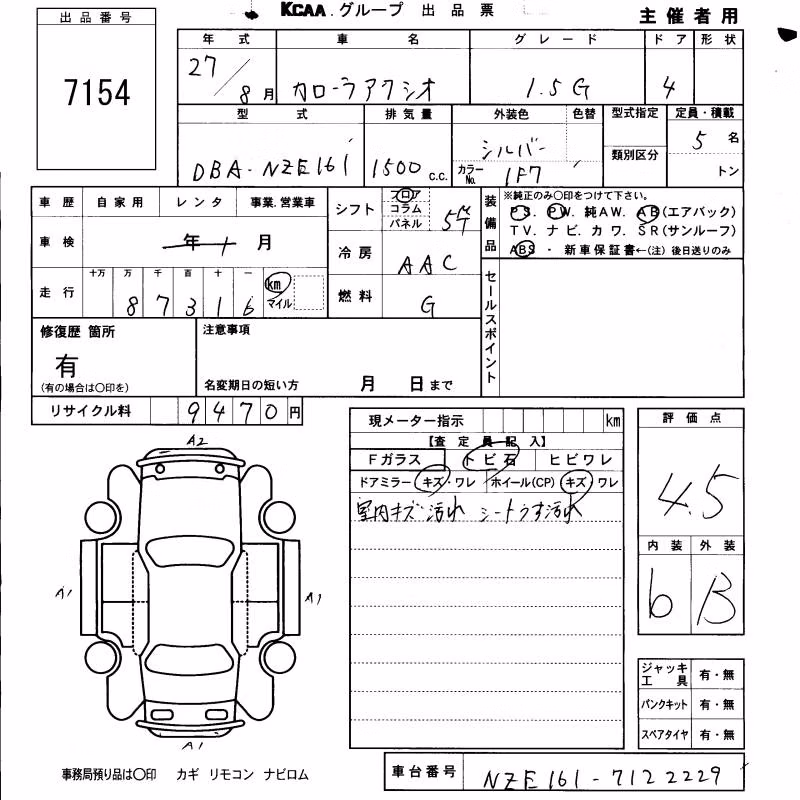 KCAA グループ 出品票
主催者用
出品番号
7154
年式 車名 グレード ドア 形状
27/8月 カローラアクシオ 1.5G 4
型式 排気量 外装色 色替 型式指定 定員・積載
DBA-NZE161 1500 c.c. シルバー カラーNo. 1F7 類別区分 5名
トン
車歴 自家用 レンタ 事業.営業車
車検 年 月
走行 十万 万 千 百 十 一 km マイル
87316
シフト フロア コラム パネル 5
冷房 AAC
燃料 G
装備品
※純正のみ○印をつけて下さい。
PS. PW. 純AW. AB(エアバック)
TV. ナビ. カワ. SR(サンルーフ)
ABS ・ 新車保証書←(注) 後日送りのみ
セールスポイント
修復歴 箇所
有
(有の場合は○印を)
注意事項
名変期日の短い方 月 日まで
リサイクル料 9470円
現メーター指示 km
【査定員記入】
Fガラス トビ石 ヒビワレ
ドアミラー キズ・ワレ ホイール(CP) キズ ワレ
室内キズ 汚れ シートうす汚れ
評価点
4.5
内装 外装
6 B
A2
A1 A1
A1
ジャッキ工具 有・無
パンクキット 有・無
スペアタイヤ 有・無
事務局預り品は○印 カギ リモコン ナビロム
車台番号 NZE161-7122229